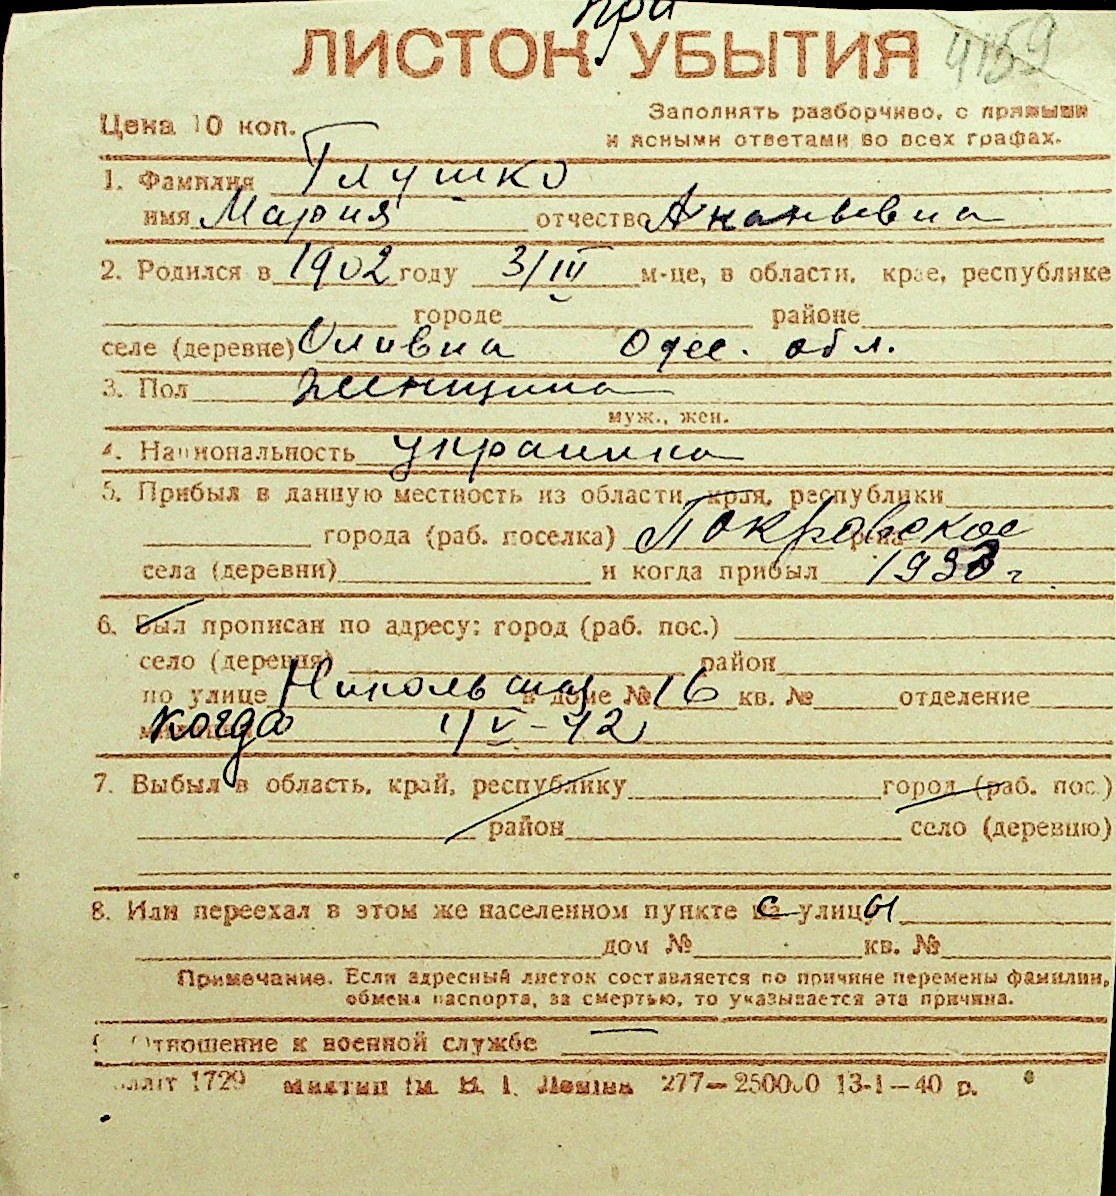 при
ЛИСТОК УБЫТИЯ 4159
Цена 10 коп.
Заполнять разборчиво, с прямыми
и ясными ответами во всех графах.
1. Фамилия Глушко
имя Мария отчество Ананьевна
2. Родился в 1902 году 3/III м-це, в области, крае, республике
городе районе
селе (деревне) Оливна Одес. обл.
3. Пол женщина
муж., жен.
4. Национальность украинка
5. Прибыл в данную местность из области, края, республики
города (раб. поселка) Покровское
села (деревни) и когда прибыл 1933 г
6. Был прописан по адресу: город (раб. пос.)
село (деревня) район
по улице Никольская в доме № 16 кв. № отделение
когда 1/V-42
7. Выбыл в область, край, республику город (раб. пос.)
район село (деревню)
8. Или переехал в этом же населенном пункте с улицы
дом № кв. №
Примечание. Если адресный листок составляется по причине перемены фамилии,
обмена паспорта, за смертью, то указывается эта причина.
Отношение к военной службе —
1729 277—250000 13-1—40 р.